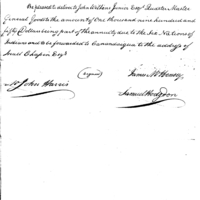 Be pleased to deliver to John Wilkins Junior Esqr Quarter Master
General Goods to the amount of One thousand nine hundred and
fifty Dollars being part of the annuity due to the Six Nations of
Indians and to be forwarded to Canandaigua to the address of
Israel Chapin Esqr
(signed) James McHenry
Mr John Harris
Samuel Hodgdon